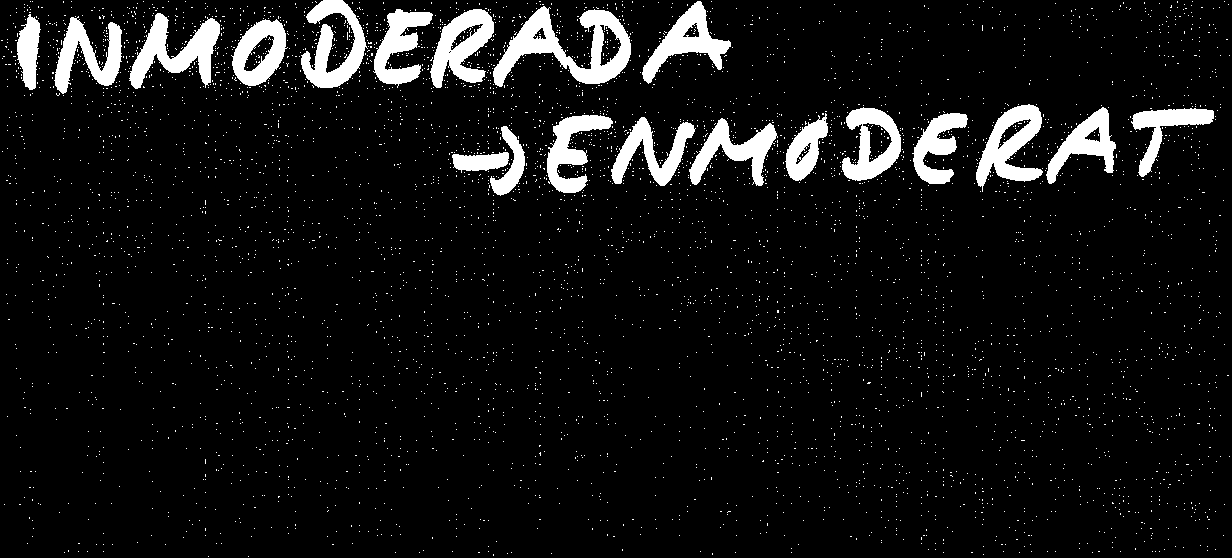 INMODERADA
→ ENMODERAT